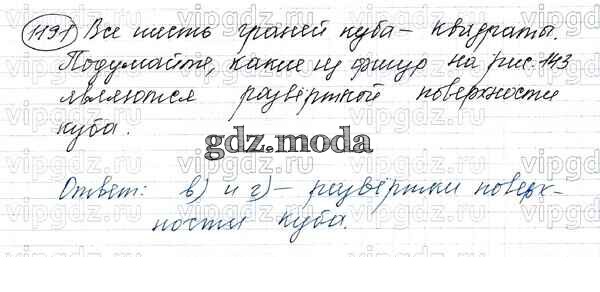 1191 Все шесть граней куба – квадраты.
Подумайте, какие из фигур на рис. 143
являются развёрткой поверхности
куба.
gdz.moda
Ответ: в) и г) – развёртки поверх-
ности куба.